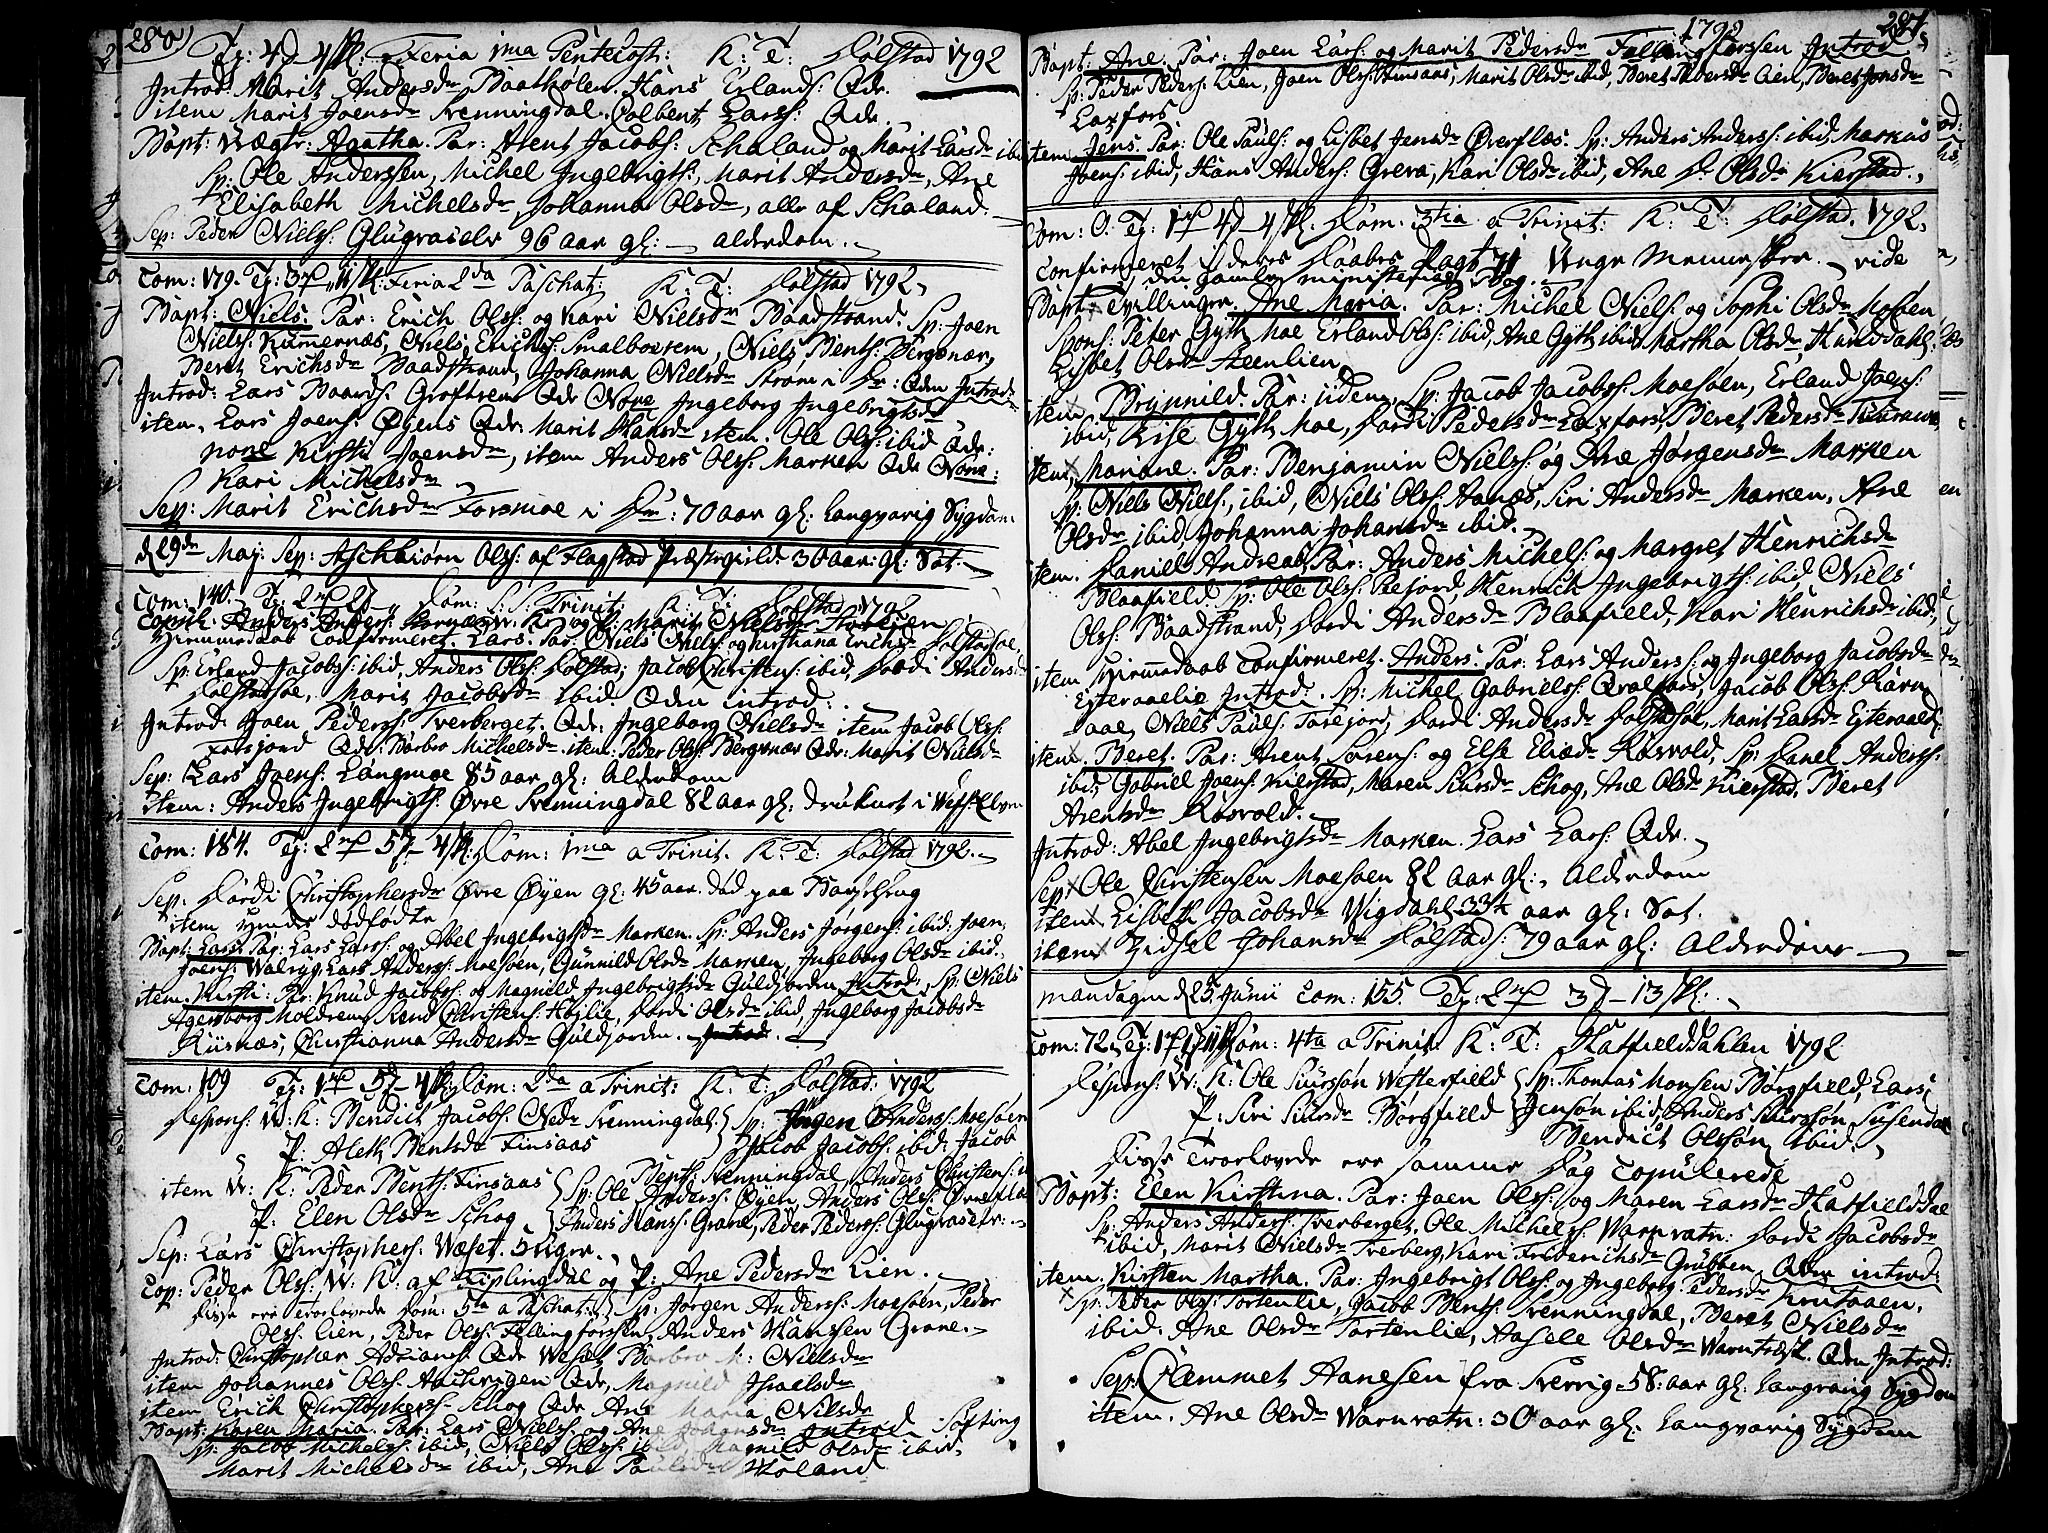 280
Tj: 4 4 sk: Feria 1ma Pentecost: K: T: Dolstad 1792
Introd: Marit Andersdr Baatholen. Hans Erlands: Qdr.
item Marit Joensdr Svenningdal. Colbent Larss: Qdr.
Bapt: Agatha. Par: Arent Jacobs: Schaland og Marit Larsdr ibid
Sp: Ole Anderssen, Michel Ingebrigts:, Marit Andersdr, Ane
Elisabeth Michelsdr, Johanna Olsdr, alle af Schaland.
Sep: Peder Niels: Glugvaselv 96 aar gl: alderdom.
Com: 179. Tj: 3 4 sk: Feria 2da Paschat: K: T: Dolstad 1792
Bapt: Niels. Par: Erich Olss: og Kari Nielsdr Baadstrand. Sp: Joen
Niels: Kumernæs, Niels Erichs: Smalboesem, Niels Bents: Bergsnæv,
Beret Erichsdr Baadstrand, Johanna Nielsdr Strøm i Introd:
Introd: Lars Baards: Groftrem Qdr None Ingeborg Ingebrigtsdr
item, Lars Joens: Øyens Qdr: Marit Hansdr item. Ole Olss: ibid Qdr:
none Kirsti Joensdr, item Anders Olss: Marken Qdr None:
Kari Michelsdr
Sep: Marit Erichsdr Forsmoe i 70 aar gl: Langvarig Sygdom.
d 29de Maj: Sep: Aschbiørn Olss: af Flagstad Præstegield. 30 aar gl: Sot.
Com: 140. Tj: 2 Dom: S: S: Trinit: K: T: Dolstad 1792
Copul: Anders W: K: og P: Marit Nielsdr
Hiemmedaab Confirmeret. Lars. Par: Niels Niels: og Kirstiana Erichsdr Dolstadsøe,
Sp: Erland Jacobs: ibid, Anders Olss: Dolstad, Jacob Christens: ibid, Dordi Andersdr
Dolstadsøe, Marit Jacobsdr ibid. Qden introd:
Introd: Joen Peders: Tverberget, Qdr: Ingeborg Nielsdr item Jacob Olss:
Forsjord Qdr: Barbro Michelsdr item: Peder Olss: Bergsnæv Qdr: Marit Nielsdr
Sep: Lars Joens: Langmoe 85 aar gl: Alderdom
item: Anders Ingebrigts: Øvre Svenningdal 82 aar gl: druknet i Wefs: Elven
Com: 184. Tj: 2 5 4 sk: Dom: 1ma a Trinit. K: T: Dolstad 1792.
Sep: Dordi Christophersdr Øvre Øyen gl: 45 aar. død paa Barselseng
item hendes dødfødte
Bapt: Lars. Par: Lars Larss: og Abel Ingebrigtsdr Marken. Sp: Anders Jørgens: ibid: Joen
Joens: Walryg, Lars Anderss: Moesøen, Gunnild Olsdr Marken, Ingeborg Olsdr ibid.
item. Kirsti: Par: Knud Jacobss: og Magnild Ingebrigtsdr Guldjorden Introd: Sp: Niels
Agersborg Moldrem, Rend Christens: Høylie, Dordi Olsdr ibid, Ingeborg Jacobsdr
Riisnæs, Christianna Andersdr Guldjorden.
Com: 109 Tj: 1 5 4 sk: Dom: 2da a Trinit: K: T: Dolstad: 1792
Respons: W: K: Bendict Jacobs: Nedr Svenningdal. Sp: Jørgen Anders: Moesøen
P: Aleth Bentsdr Finsaas Jacob Jacobs: ibid: Jacob
item W: K: Peder Bents: Finsaas Bents Svenningdal, Anders Christens:
P: Elen Olsdr Schog Sp: Ole Anders: Øyen, Anders Olss:
Anders Hans: Grane, Peder Peders: Glugvaselv:
Sep: Lars Christophers: Wæset. 5 Uger.
Cop: Peder Olss: W: K: af Kiplingdal og P: Ane Pedersdr Lien.
Disse ere trolovede Dom: 5ta a Paschat: Sp: Jørgen Anders: Moesøen, Peder
Olss: Lien, Peder Olss: Fellingforssen, Anders Hanssen Grane.
Introd: Christopher Adrians: Qdr Weset Barbro Nielsdr
item Johannes Olss: Qdr, Magnild Israelsdr
item Erich Christophers: Schog Qdr Ane Maria Nilsdr
Bapt: Karen Maria. Par: Lars Niels: og Ane Johansdr introd Søfting
Sp: Jacob Michels: ibid, Niels Olss: ibid, Magnild Olsdr ibid.
Marit Michelsdr ibid, Ane Paulsdr Holand
1792 281
Bapt: Ane. Par: Joen Lars: og Marit Pedersdr Fellingforssen Introd
Sp: Peder Peders: Lien, Joen Olss: Finsaas, Marit Olsdr ibid, Beret Pedersdr Lien, Beret Jonsdr
Laxfors
item Jens. Par: Ole Pauls: og Lisbet Jensdr Øverflæs. Sp: Anders Anderss: ibid, Markus
Joens: ibid, Hans Anders: Greva, Kari Olsdr ibid, Ane Olsdr Kierstad.
Com: 0. Tj: 1 4 4 sk. Dom: 3tia a Trinit: K: T: Dolstad. 1792.
Confirmeret i deres Daabes Pagt 71 Unge Mennesker. vide
den gamle ministerial Bog.
Bapt: Tvillinger. Ane Maria. Par: Michel Niels: og Sophi Olsdr Mosen
Spons: Peter Gyth Moe Erland Olss: ibid, Ane Gyth ibid Martha Olsdr,
Lisbet Olsdr Steenlien
item Brynnild. Par: iidem, Sp: Jacob Jacobss: Moesøen, Erland Joens:
ibid, Lise Gyth Moe, Dordi Pedersdr Laxfors, Beret Pedersdr
item, Mariane. Par: Benjamin Niels: og Ane Jørgensdr Marken
Sp: Niels Niels:, ibid, Niels Olss: Aanæs, Siri Andersdr Marken, Ane
Olsdr ibid, Johanna Johansdr ibid.
item. Daniel Andreas. Par: Anders Michels: og Margret Henrichsdr
Blaafield. Sp: Ole Olss: Reefjord, Henrich Ingebrigts: ibid, Niels
Olss: Baadstrand, Dordi Andersdr Blaafield, Kari Henrichsdr ibid,
item Hiemmedaab Confirmeret. Anders. Par: Lars Anders: og Ingeborg Jacobsdr
Eiteraaelie Introd:. Sp: Michel Gabriels: Qvalfors, Jacob Olss:
aae, Niels Pauls: Forsjord, Dordi Andersdr Dolstadsøe, Marit Larsdr Eiteraaelie
item. Beret. Par: Arent Sørens: og Else Eliædr Rosvold, Sp: Danel Anders:
ibid, Gabriel Joens: Kierstad, Maren Siursdr Schog, Ane Olsdr Kierstad. Beret
Arentsdr Rosvold.
Introd: Abel Ingebrigtsdr Marken. Lars Lars: Qdr.
Sep: Ole Christensen Moesøen 82 aar gl: Alderdom
item Lisbeth Jacobsdr Wigdahl 33½ aar gl: Sot.
item Zidsel Johansdr Dolstads: 79 aar gl: Alderdom
Mandagen d 25 Junii Com: 155. Tj: 2 3 13 sk:
Com: 72. Tj: 1 Dom: 4ta a Trinit: K: T: Hatfielddahlen 1792
Respons: W: K: Ole Siursøn Westerfield Sp: Thomas Monsen Børgfield, Lars
P: Siri Siursdr Børgfield Jensøn ibid, Anders Siursøn Susendal
Bendict Olssøn ibid.
Disse Trolovede ere samme Dag Copulerede
Bapt: Elen Kirstina. Par: Joen Olss: og Maren Larsdr Hatfielddal
Sp: Anders Anders: Tverberget, Ole Michels: Warnvatn: Dordi Jacobsdr
ibid, Marit Nielsdr Tverberg, Kari Friderichsdr Grubben Qden introd:
item. Kirsten Martha. Par: Ingebrigt Olss: og Ingeborg Pedersdr Krutaaen.
Sp: Peder Olss: Tortenlie, Jacob Bents: Svenningdal, Beret Nielsdr
ibid. Ane Olsdr Tortenlie, Aasele Olsdr Warntræsk. Qden Introd:
Sep: Clemmet Aanesen fra Sverrig 58 aar gl: Langvarig Sygdom
item. Ane Olsdr Warnvatn: 30 aar gl: Langvarig Sygdom